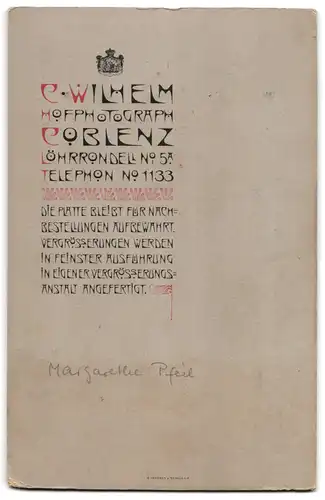 C. WILHELM
HOFPHOTOGRAPH
COBLENZ
LÖHRRONDELL NO 5A
TELEPHON NO 1133
DIE PLATTE BLEIBT FÜR NACH=
BESTELLUNGEN AUFBEWAHRT.
VERGRÖSSERUNGEN WERDEN
IN FEINSTER AUSFÜHRUNG
IN EIGENER VERGRÖSSERUNGS=
ANSTALT ANGEFERTIGT.
Margarethe Pfeil